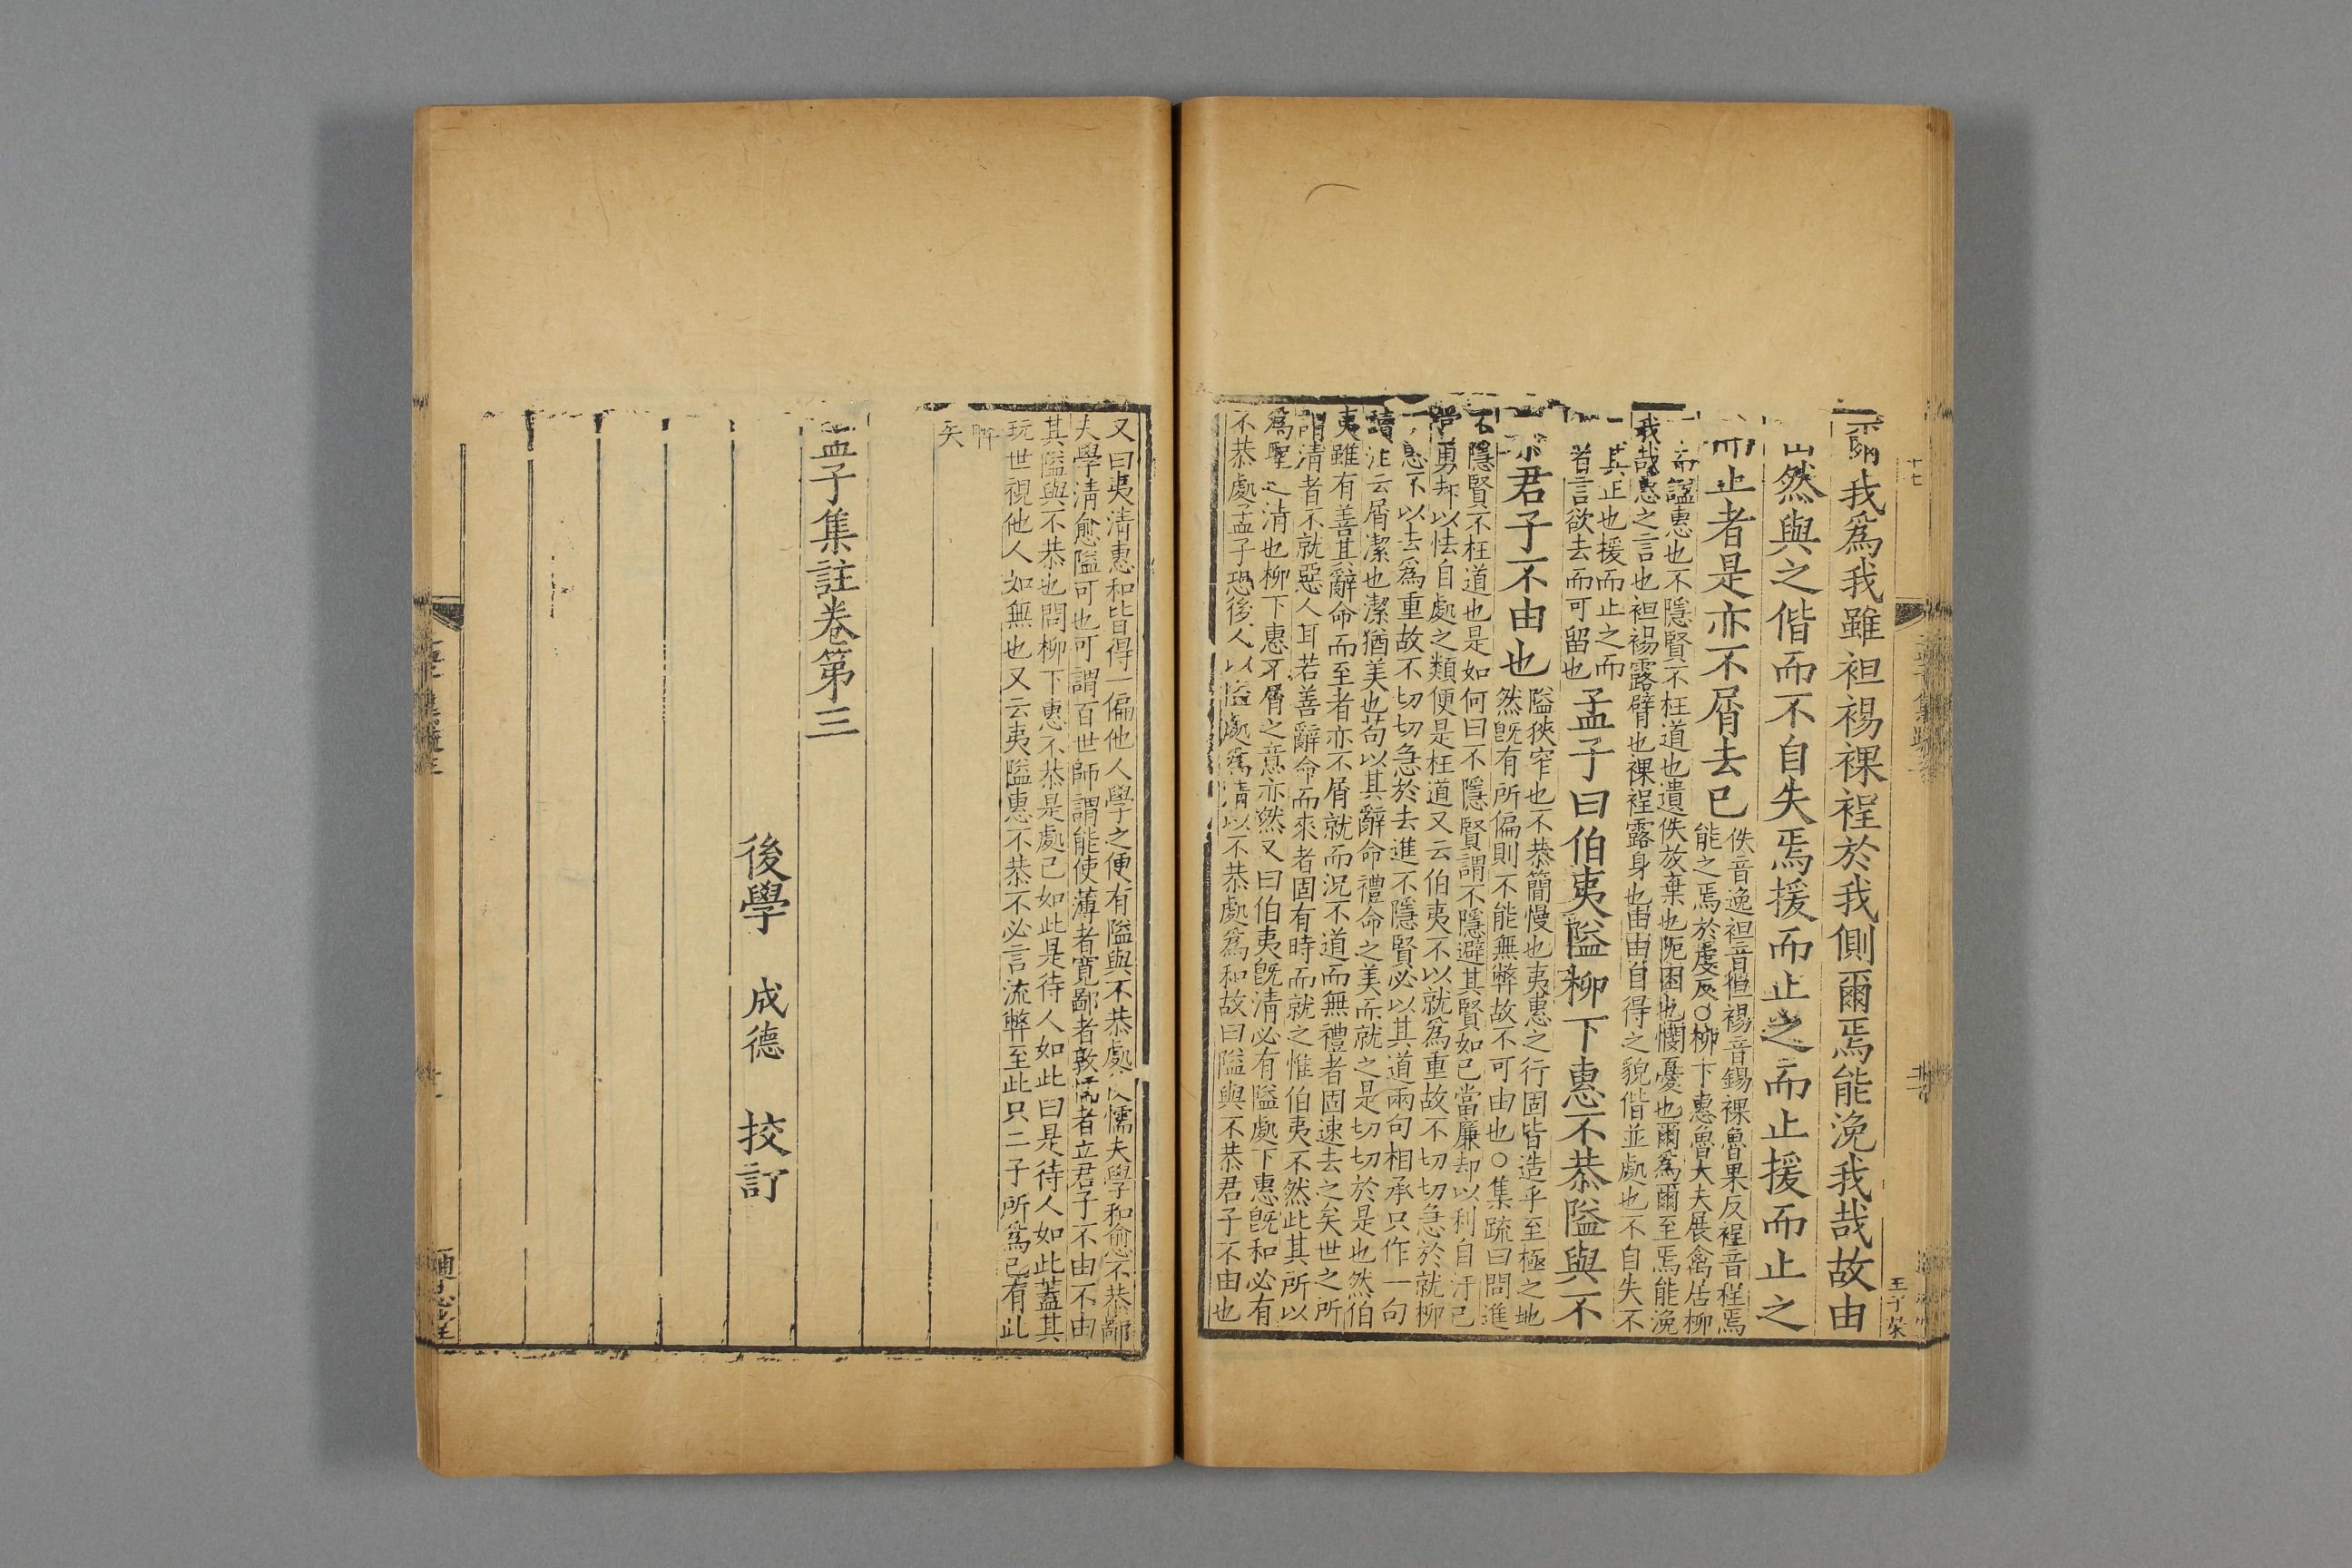 爾我爲我雖袒裼裸裎於我側爾焉能浼我哉故由
然與之偕而不自失焉援而止之而止援而止之
而止者是亦不屑去已
佚音逸袒音但裼音錫裸魯果反裎音程焉
能之焉於虔反○柳下惠魯大夫展禽居柳
而諡惠也不隱賢不枉道也遺佚放棄也阨困也憫憂也爾爲爾至焉能浼
我哉惠之言也袒裼露臂也裸裎露身也由由自得之貌偕並處也不自失不
其正也援而止之而
者言欲去而可留也
孟子曰伯夷隘柳下惠不恭隘與不
君子不由也
隘狹窄也不恭簡慢也夷惠之行固皆造乎至極之地
然旣有所偏則不能無弊故不可由也○集疏曰問進
不隱賢不枉道也是如何曰不隱賢謂不隱避其賢如已當廉却以利自汙已
當勇却以怯自處之類便是枉道又云伯夷不以就爲重故不切切急於就柳
惠不以去爲重故不切切急於去進不隱賢必以其道兩句相承只作一句
讀 云屑潔也潔猶美也苟以其辭命禮命之美而就之是切切於是也然伯
夷雖有善其辭命而至者亦不屑就而況不道而無禮者固速去之矣世之所
謂清者不就惡人耳若善辭命而來者固有時而就之惟伯夷不然此其所以
爲聖之清也柳下惠不屑之意亦然又曰伯夷旣清必有隘處下惠旣和必有
不恭處孟子恐後人以隘處爲清以不恭處爲和故曰隘與不恭君子不由也
王子榮
又曰夷清惠和皆得一偏他人學之便有隘與不恭處 懦夫學和愈不恭鄙
夫學清愈隘可也可謂百世師謂能使薄者寬鄙者敦懦者立君子不由不由
其隘與不恭也問柳下惠不恭是處已如此是待人如此曰是待人如此蓋其
玩世視他人如無也又云夷隘惠不恭不必言流弊至此只二子所爲已有此
弊
矣
孟子集註卷第三
後學 成德 挍訂